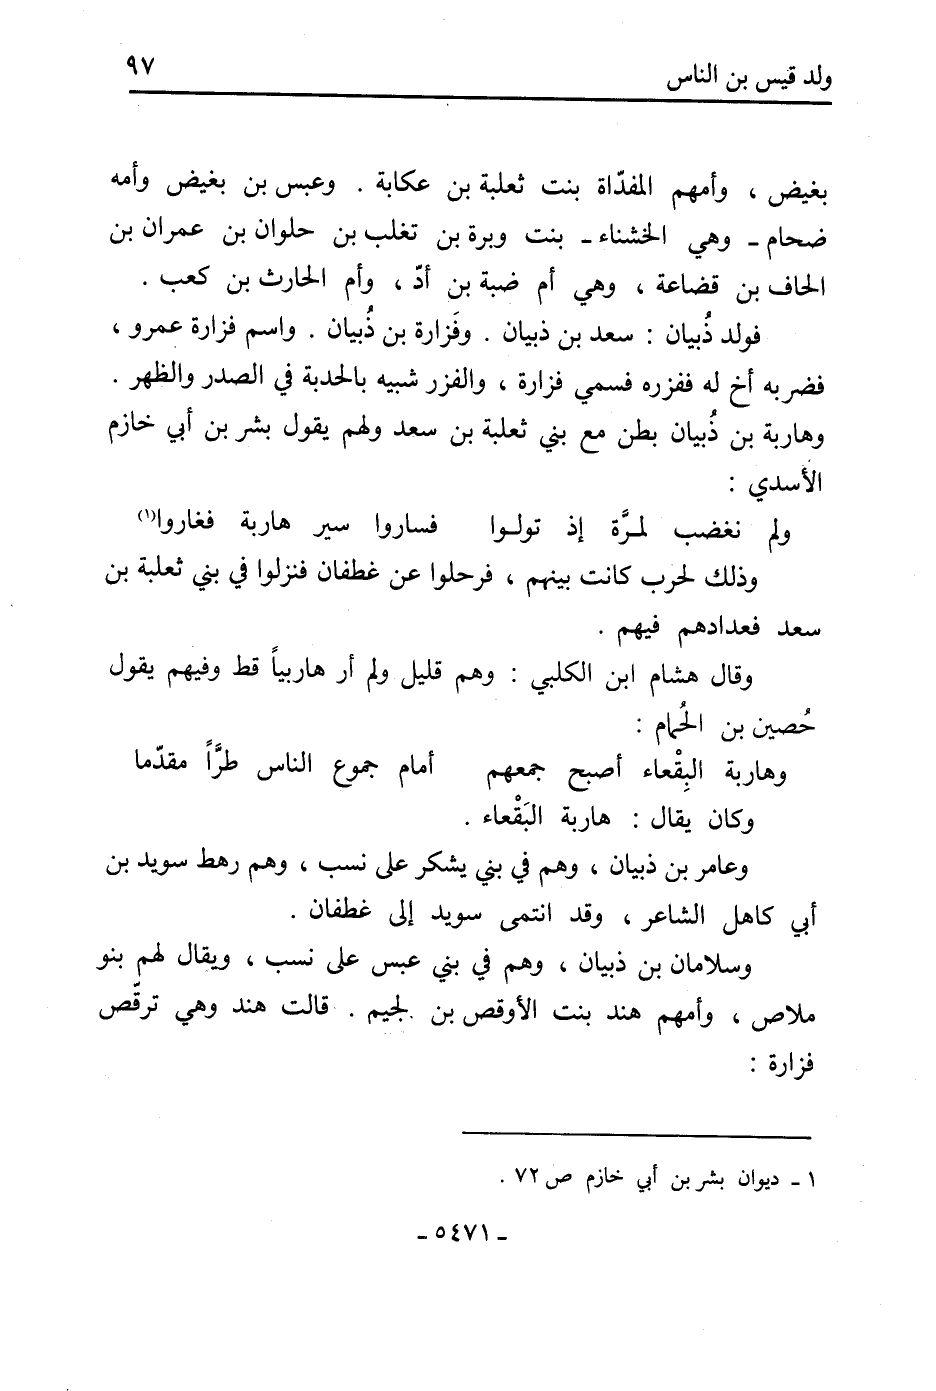 ولد قيس بن الناس ٩٧
بغيض ، وأمهم المفدّاة بنت ثعلبة بن عكابة . وعبس بن بغيض وأمه
ضحام ـ وهي الخشناء ـ بنت وبرة بن تغلب بن حلوان بن عمران بن
الحاف بن قضاعة ، وهي أم ضبة بن أدّ ، وأم الحارث بن كعب .
فولد ذُبيان : سعد بن ذبيان . وفَزارة بن ذُبيان . واسم فزارة عمرو ،
فضربه أخ له ففزره فسمي فزارة ، والفزر شبيه بالحدبة في الصدر والظهر .
وهاربة بن ذُبيان بطن مع بني ثعلبة بن سعد ولهم يقول بشر بن أبي خازم
الأسدي :
ولم نغضب لمرَّة إذ تولوا فساروا سير هاربة فغاروا(١)
وذلك لحرب كانت بينهم ، فرحلوا عن غطفان فنزلوا في بني ثعلبة بن
سعد فعدادهم فيهم .
وقال هشام ابن الكلبي : وهم قليل ولم أر هاربياً قط وفيهم يقول
حُصين بن الحُمام :
وهاربة البِقْعاء أصبح جمعهم أمام جموع الناس طرَّاً مقدّما
وكان يقال : هاربة البَقْعاء .
وعامر بن ذبيان ، وهم في بني يشكر على نسب ، وهم رهط سويد بن
أبي كاهل الشاعر ، وقد انتمى سويد إلى غطفان .
وسلامان بن ذبيان ، وهم في بني عبس على نسب ، ويقال لهم بنو
ملاص ، وأمهم هند بنت الأوقص بن لجيم . قالت هند وهي ترقّص
فزارة :
١ ـ ديوان بشر بن أبي خازم ص ٧٢ .
ـ ٥٤٧١ ـ